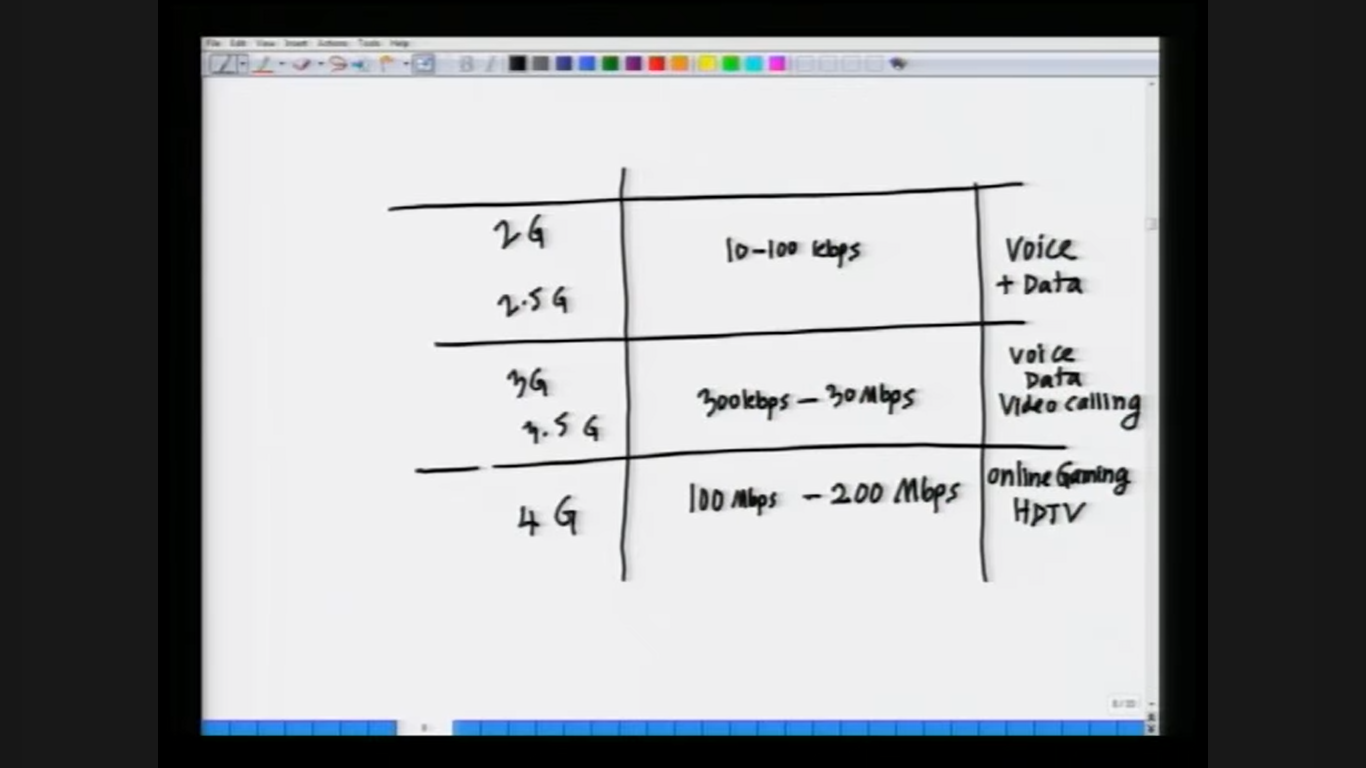 File Edit View Insert Actions Tools Help
B I
2G
10-100 kbps
Voice
+ Data
2.5 G
3G
300kbps - 30Mbps
Voice
Data
Video calling
3.5 G
4 G
100 Mbps - 200 Mbps
online Gaming
HDTV